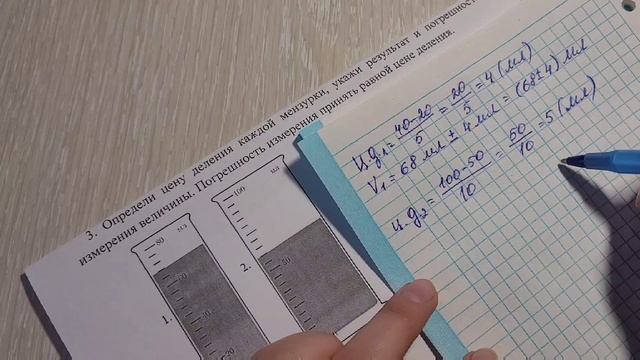 3. Определи цену деления каждой мензурки, укажи результат и погрешность
измерения величины. Погрешность измерения принять равной цене деления.
1.
мл
80
60
40
20
2.
мл
100
50
ц.д₁ = (40-20)/5 = 20/5 = 4 (мл)
V₁ = 68 мл ± 4 мл = (68±4) мл
ц.д₂ = (100-50)/10 = 50/10 = 5 (мл)